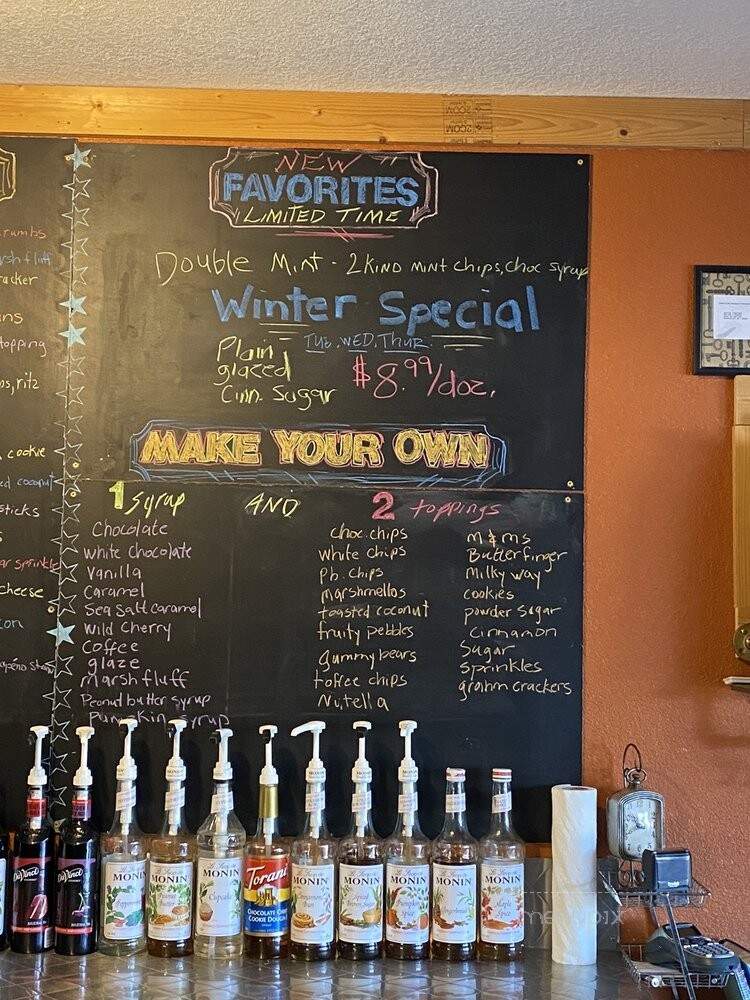 rumbs
rsh fluff
racker
ns
topping
os, ritz
cookie
ed coconut
sticks
s
ar sprinkle
cheese
con
NEW
FAVORITES
LIMITED TIME
Double Mint - 2 KIND MINT chips, choc syrup
Winter Special
TUE. WED. THUR.
Plain
glazed
Cinn. Sugar
$8.99/doz.
MAKE YOUR OWN
1 Syrup AND 2 toppings
Chocolate
white chocolate
Vanilla
Caramel
Sea Salt Caramel
Wild Cherry
Coffee
glaze
marshfluff
Peanut butter syrup
Pumpkin syrup
choc. chips
white chips
Pb. chips
marshmellos
toasted coconut
fruity pebbles
gummy bears
toffee chips
Nutella
m & ms
Butterfinger
Milky way
cookies
powder sugar
cinnamon
Sugar
Sprinkles
grahm crackers
DaVinci
DaVinci
MONIN
MONIN
MONIN
Cupcake
Torani
CHOCOLATE CHIP
COOKIE DOUGH
MONIN
MONIN
MONIN
MONIN
MONIN
Maple
Spice